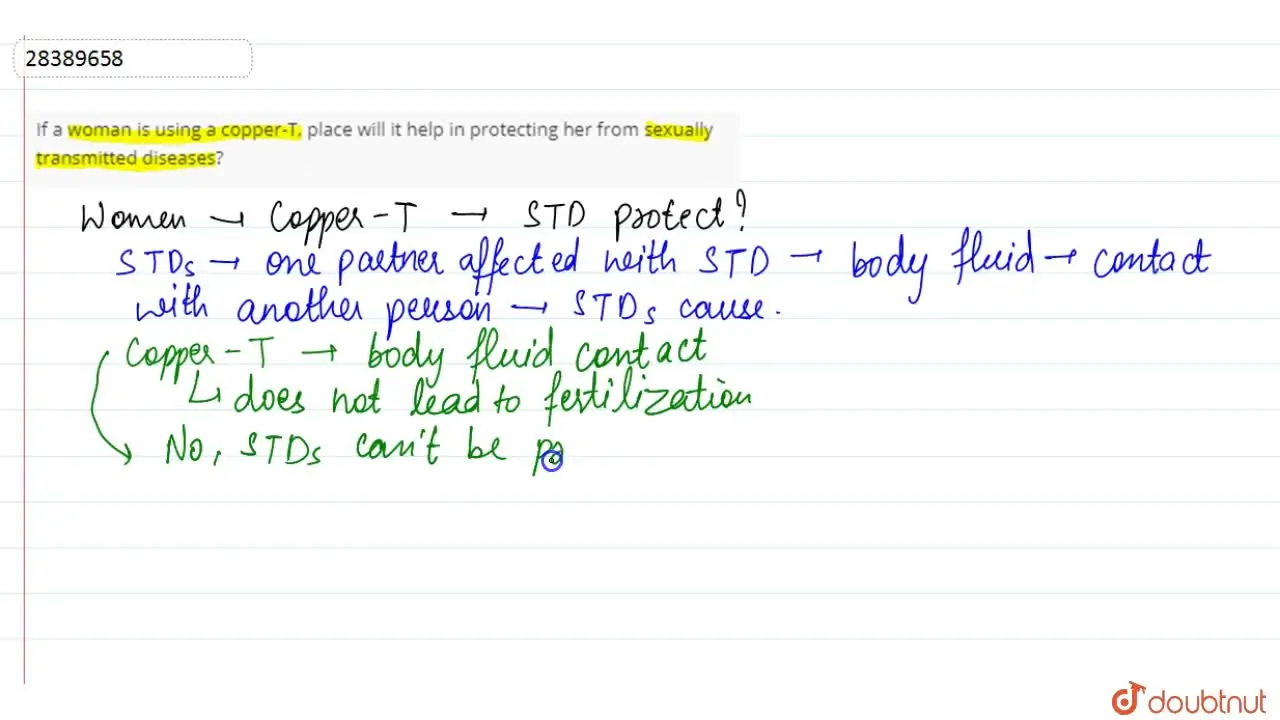 28389658
If a woman is using a copper-T, place will it help in protecting her from sexually
transmitted diseases?
Women → Copper-T → STD protect?
STDs → one partner affected with STD → body fluid → contact
with another person → STDs cause.
Copper-T → body fluid contact
↳ does not lead to fertilization
→ No, STDs can't be
doubtnut